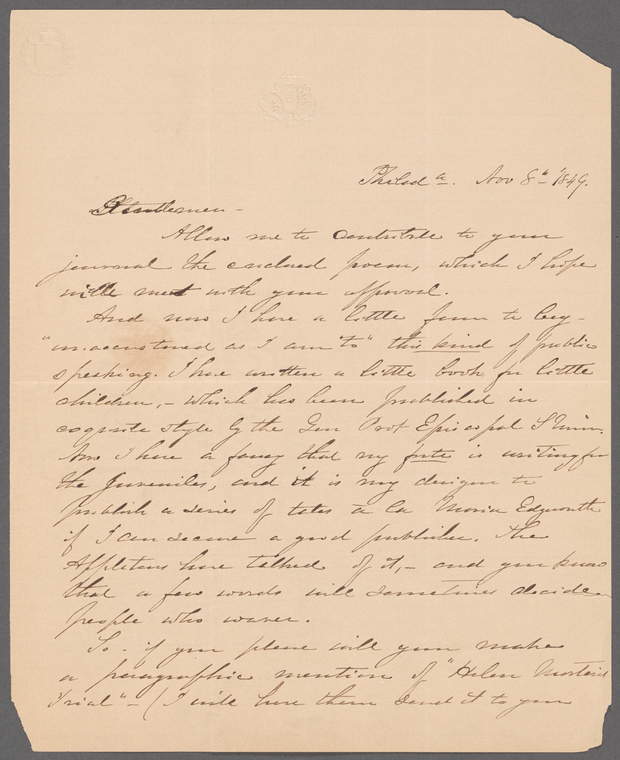 Philad a. Nov 8th 1849.
Gentlemen -
Allow me to contribute to your
journal the enclosed poem, which I hope
will meet with your approval.
And now I have a little favor to beg -
"unaccustomed as I am to" this kind of public
speaking. I have written a little book for little
children, - which has been published in
exquisite style by the Gen Prot Episcopal S Union.
Now I have a fancy that my forte is writing for
the juveniles, and it is my design to
publish a series of tales a la Maria Edgworth
if I can secure a good publisher. The
Appletons have talked of it, - and you know
that a few words will sometimes decide
people who waver.
So - if you please will you make
a paragraphic mention of "Helen Morton's
Trial" - (I will have them send it to you